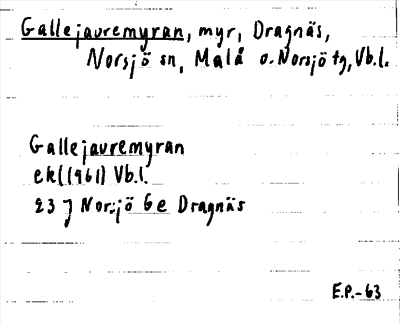 Gallejauremyran, myr, Dragnäs,
Norsjö sn, Malå o. Norsjö tg, Vb.l.
Gallejauremyran
ek (1961) Vb.l.
23 J Norsjö 6e Dragnäs
E.P.-63